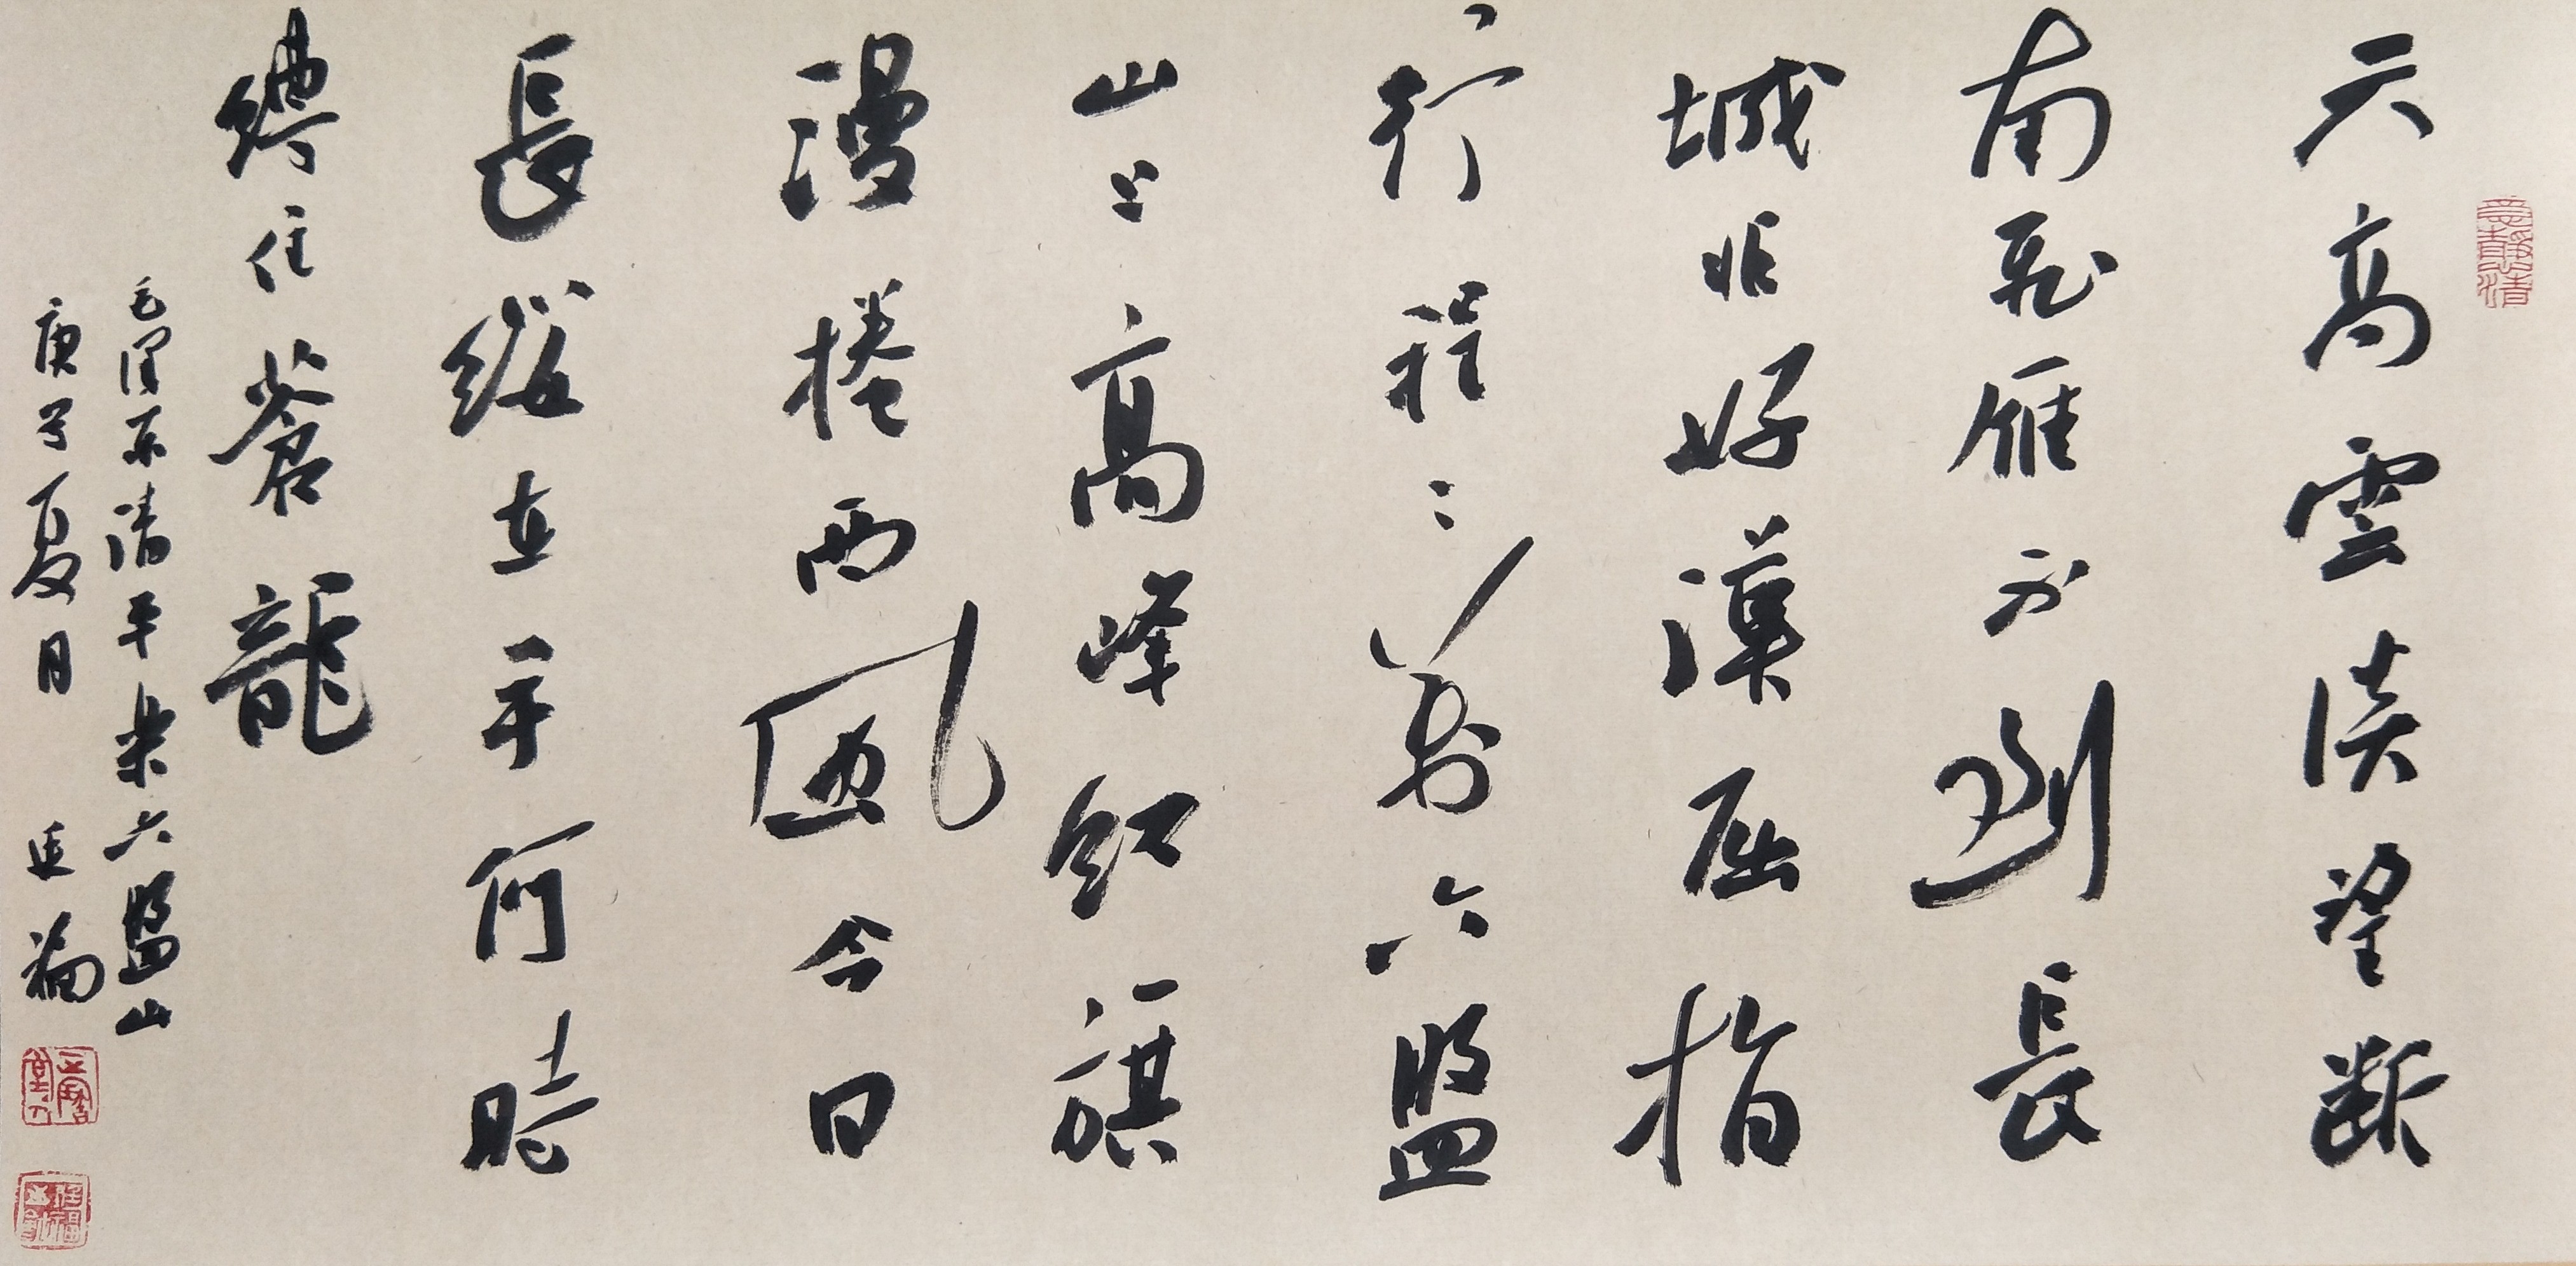 天高雲淡望斷
南飛雁不到長
城非好漢屈指
行程二萬六盤
山上高峰紅旗
漫捲西風今日
長纓在手何時
縛住蒼龍
毛澤东清平樂六盤山
庚子夏日 福